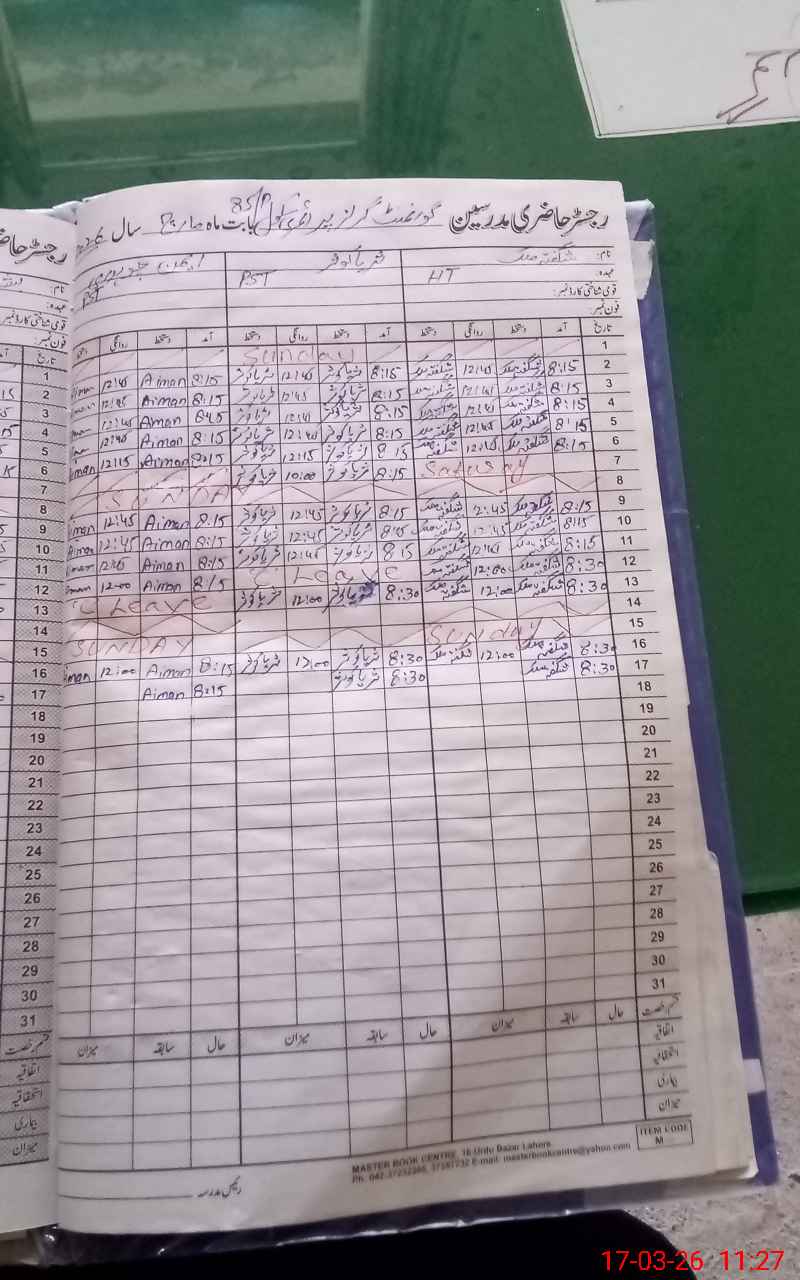 رجسٹر حاضری مدرسین گورنمنٹ گرلز پرائمری سکول 85/P بابت ماہ مارچ سال 2026
نام: شگفتہ ملک ثریا کوثر
عہدہ: HT PST PST
قومی شناختی کارڈ نمبر:
فون نمبر:
تاریخ آمد دستخط روانگی دستخط آمد دستخط روانگی دستخط آمد دستخط روانگی دستخط
1 Sunday
2 8:15 شگفتہ ملک 12:45 شگفتہ ملک 8:15 ثریا کوثر 12:45 ثریا کوثر 8:15 Aiman 12:45 Aiman
3 8:15 شگفتہ ملک 12:45 شگفتہ ملک 8:15 ثریا کوثر 12:45 ثریا کوثر 8:15 Aiman 12:45 Aiman
4 8:15 شگفتہ ملک 12:45 شگفتہ ملک 8:15 ثریا کوثر 12:45 ثریا کوثر Aiman 12:45 Aiman
5 8:15 شگفتہ ملک 12:45 شگفتہ ملک 8:15 ثریا کوثر 12:40 ثریا کوثر 8:15 Aiman 12:45 Aiman
6 8:15 شگفتہ ملک 12:15 شگفتہ ملک 8:15 ثریا کوثر 12:15 ثریا کوثر 8:15 Aiman 12:15 Aiman
7 Satusday 8:15 ثریا کوثر 10:00 ثریا کوثر
8 SUNDAY
9 8:15 شگفتہ ملک 12:45 شگفتہ ملک 8:15 ثریا کوثر 12:45 ثریا کوثر 8:15 Aiman 12:45 Aiman
10 8:15 شگفتہ ملک 12:45 شگفتہ ملک 8:15 ثریا کوثر 12:45 ثریا کوثر 8:15 Aiman 12:45 Aiman
11 8:15 شگفتہ ملک 12:45 شگفتہ ملک 8:15 ثریا کوثر 12:45 ثریا کوثر 8:15 Aiman Aiman
12 8:30 شگفتہ ملک 12:00 شگفتہ ملک C Leave 8:15 Aiman 12:00 Aiman
13 8:30 شگفتہ ملک 12:00 شگفتہ ملک 8:30 ثریا کوثر 12:00 ثریا کوثر C Leave
14
15 Sunday SUNDAY
16 8:30 شگفتہ ملک 12:00 شگفتہ ملک 8:30 ثریا کوثر 12:00 ثریا کوثر 8:15 Aiman 12:00 Aiman
17 8:30 شگفتہ ملک 8:30 ثریا کوثر 8:15 Aiman
18
19
20
21
22
23
24
25
26
27
28
29
30
31
قسم رخصت حال سابقہ میزان حال سابقہ میزان حال سابقہ میزان
اتفاقیہ
استحقاقیہ
بیماری
میزان
ITEM CODE
M
MASTER BOOK CENTRE, 16-Urdu Bazar Lahore.
Ph: 042-37232366, E-mail: masterbookcentre@yahoo.com
رئیس مدرسہ
رجسٹر حاضری
نام:
عہدہ:
قومی شناختی کارڈ نمبر
فون نمبر:
تاریخ
1
2
3
4
5
6
7
8
9
10
11
12
13
14
15
16
17
18
19
20
21
22
23
24
25
26
27
28
29
30
31
قسم رخصت
اتفاقیہ
استحقاقیہ
بیماری
میزان
17-03-26 11:27